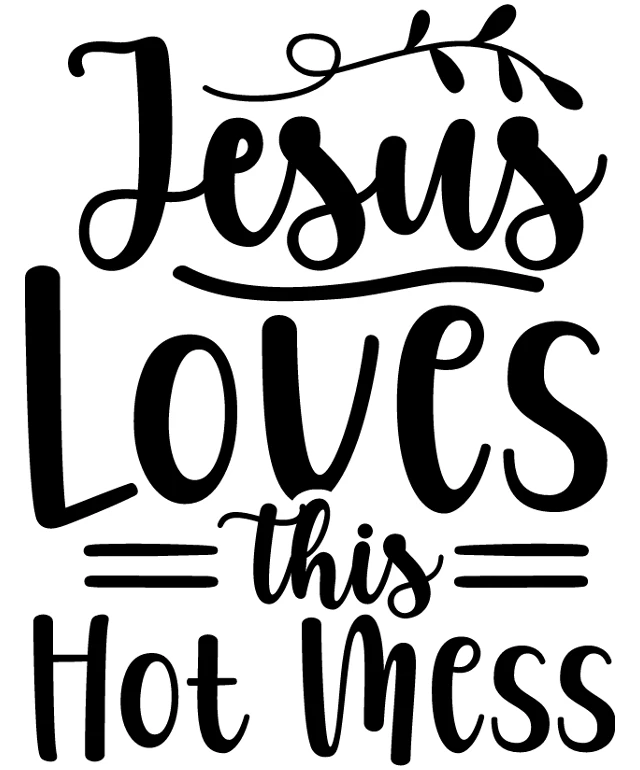 Jesus
Loves
this
Hot Mess